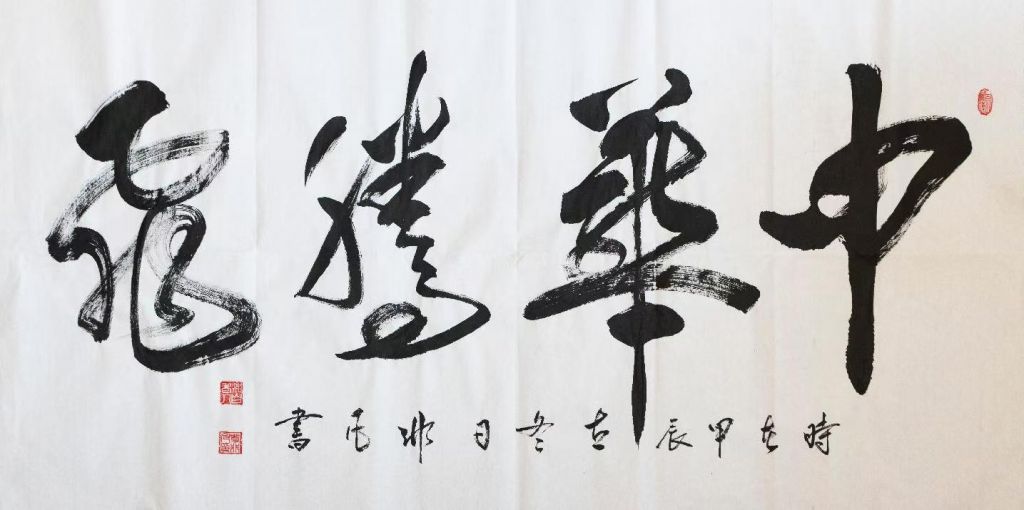 中華騰飛
時在甲辰立冬日書